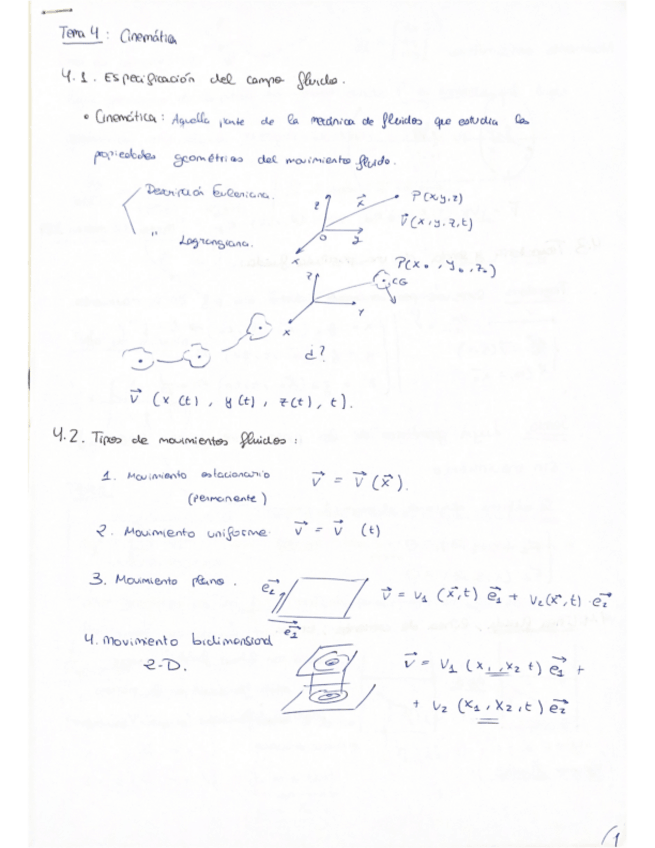 Tema 4 : Cinemática
4.1. Especificación del campo fluido.
• Cinemática : Aquella parte de la mecánica de fluidos que estudia las
propiedades geométricas del movimiento fluido.
Descripción Euleriana.
" Lagrangiana.
z x⃗ P(x,y,z)
v⃗ (x,y,z,t)
O
x
P(x₀, y₀, z₀)
z CG
y
x
¿?
v⃗ (x(t), y(t), z(t), t).
4.2. Tipos de movimientos fluidos :
1. Movimiento estacionario v⃗ = v⃗ (x⃗).
(permanente)
2. Movimiento uniforme v⃗ = v⃗ (t)
3. Movimiento plano. e₂⃗ v⃗ = v₁ (x⃗,t) e₁⃗ + v₂(x⃗,t) · e₂⃗
e₁⃗
4. Movimiento bidimensional
2-D. v⃗ = v₁ (x₁,x₂ t) e₁⃗ +
+ v₂ (x₁,x₂,t) e₂⃗
/1